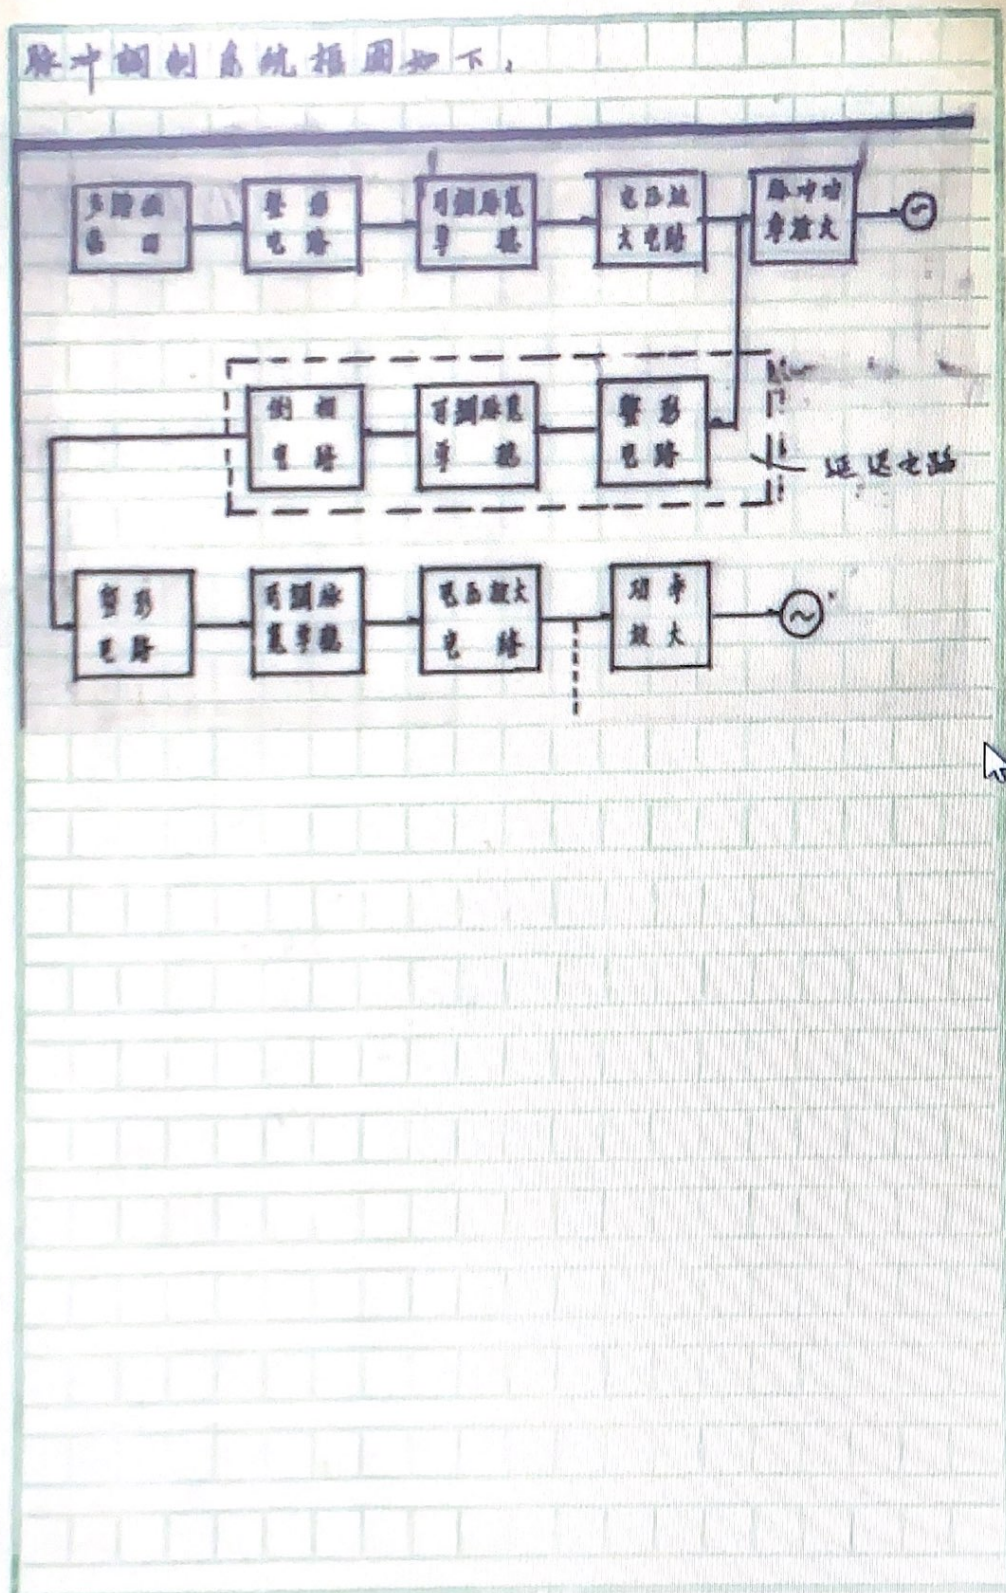 脉冲調制系统框图如下:
整形
电路
可調脉宽
单稳
电压放
大电路
脉冲功
率放大
倒相
电路
可調脉宽
单稳
整形
电路
延迟电路
整形
电路
可調脉
宽单稳
电压放大
电路
功率
放大